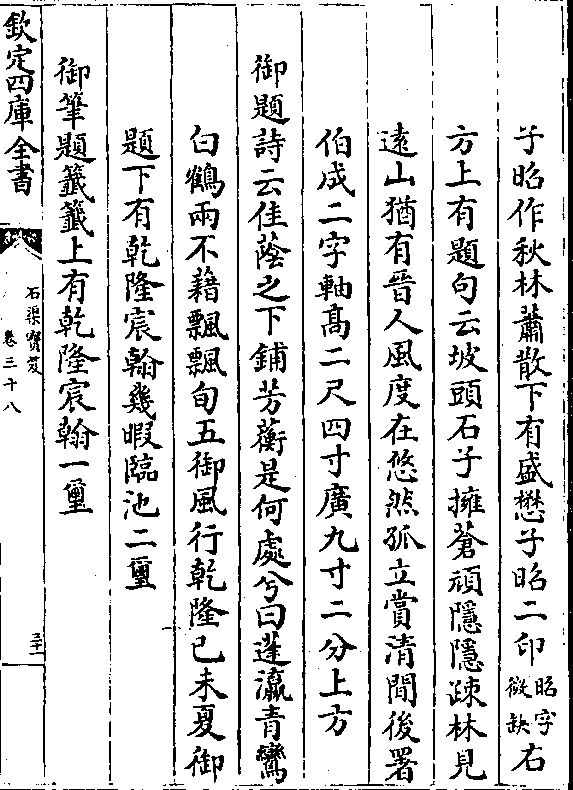 子昭作秋林蕭散下有盛懋子昭二印昭字微缺右
方上有題句云坡頭石子擁蒼頑隱隱疎林見
遠山猶有晉人風度在悠然孤立賞清間後署
伯成二字軸髙二尺四寸廣九寸二分上方
御題詩云佳蔭之下鋪芳蘅是何處兮曰蓬瀛青鸞
白鶴兩不藉飄飄旬五御風行乾隆已未夏御
題下有乾隆宸翰幾暇臨池二璽
御筆題籤籤上有乾隆宸翰一璽
欽定四庫全書
石渠寶笈
卷三十八
三十一